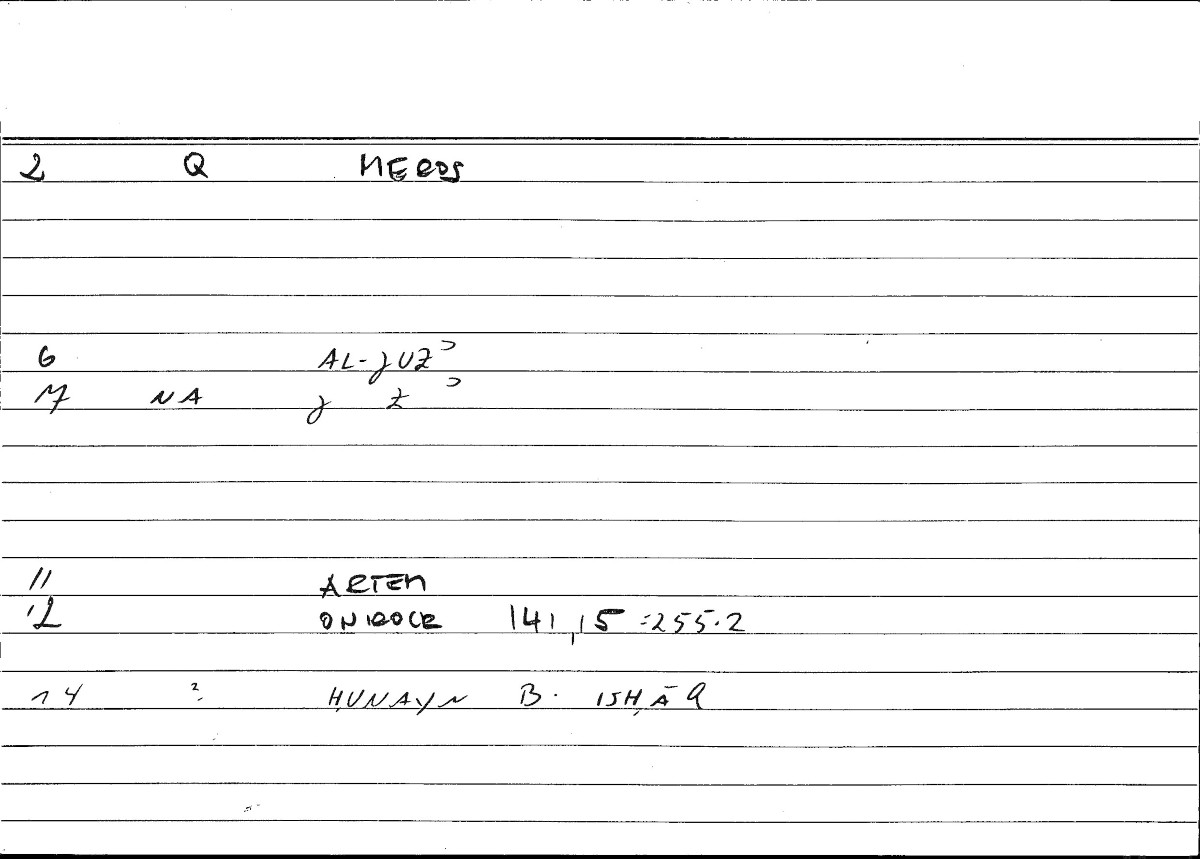 2 Q MEROS
6 AL-JUZʾ
17 NA J Z ʾ
11 ARTEM
12 ONIROCR 141,15 = 255.2
14 ? ḤUNAYN B. ISḤĀQ